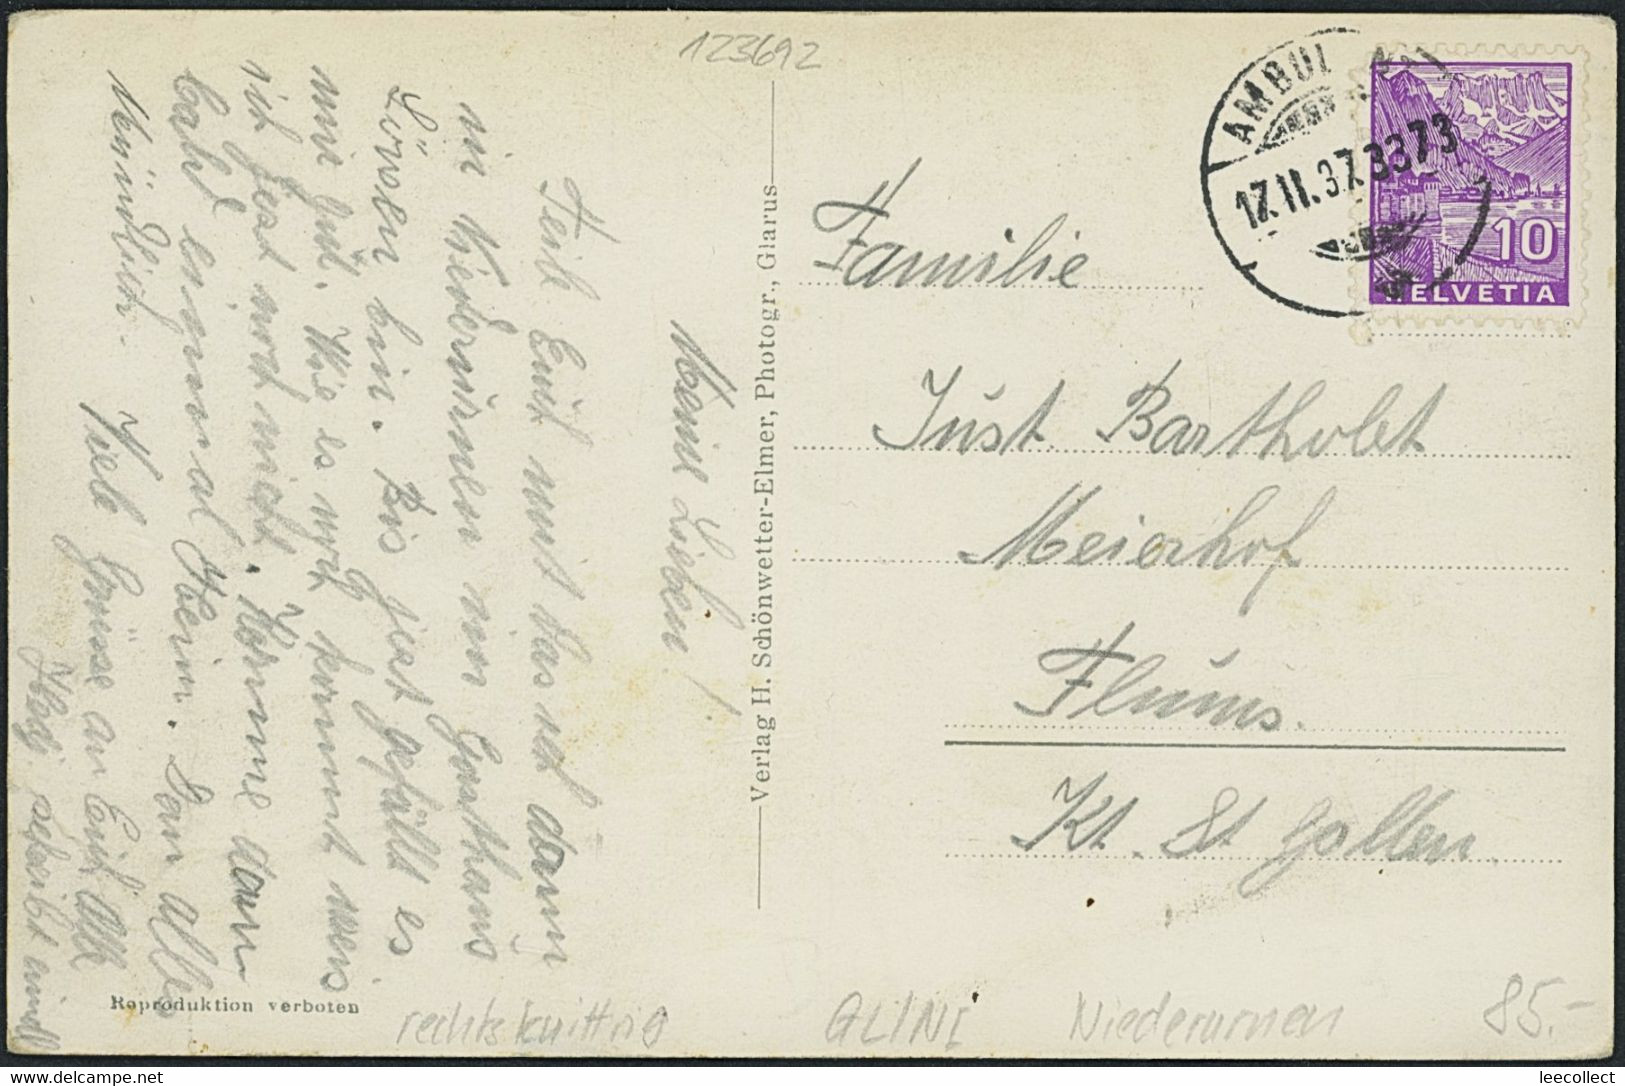 123692
AMBUL
17.II.37.3373
10
HELVETIA
Meine Lieben!
Teile Euch mit das ich dann
in Niederurnen im Gasthaus
Löwen bin. Bis jest gefällt es
mir gut. Wie es kommt weis
ich jest noch nicht. Komme dann
bald einmal Heim. Dan alles
Mündlich. Viele Grüsse an Euch Alle
schreibt einmal
Verlag H. Schönwetter-Elmer, Photogr., Glarus
Familie
Just Bartholet
Meierhof
Flums.
Kt. St Gallen.
Reproduktion verboten
Niederurnen
85.-
delcampe.net
leecollect